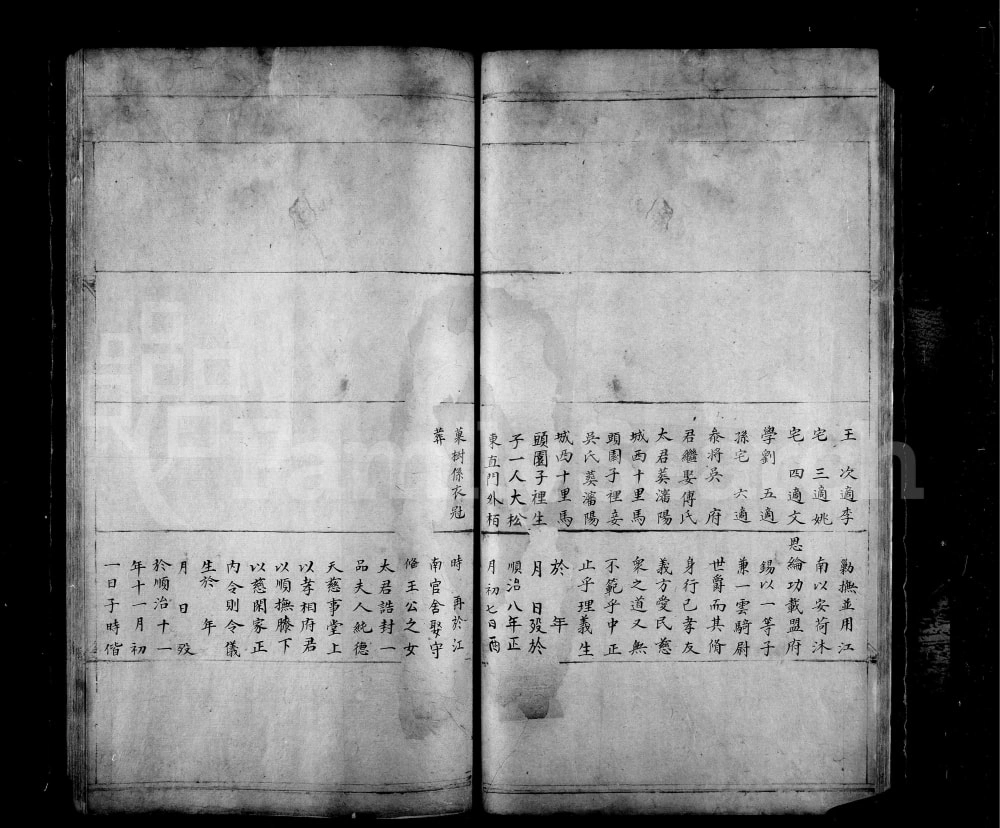 王　次適李
宅　三適姚
宅　四適文
學劉　五適
孫宅　六適
叅将吳　府
君繼娶傅氏
太君葬瀋陽
城西十里馬
頭圍子裡妾
吳氏葬瀋陽
城西十里馬
頭圍子裡生
子一人大松
東直門外栢
墓樹係衣冠
葬
勦撫並用江
南以安荷沐
恩綸功載盟府
錫以一等子
兼一雲騎尉
世爵而其脩
身行己孝友
義方愛民慈
衆之道又無
不範乎中正
止乎理義生
於　年
月　日歿於
順治八年正
月初七日酉
時　再於江
南官舍娶守
脩王公之女
太君誥封一
品夫人純德
天慈事堂上
以孝相府君
以順撫媵下
以慈閑家正
內令則令儀
生於　年
月　日歿
於順治十一
年十一月初
一日子時偕
FamilySearch